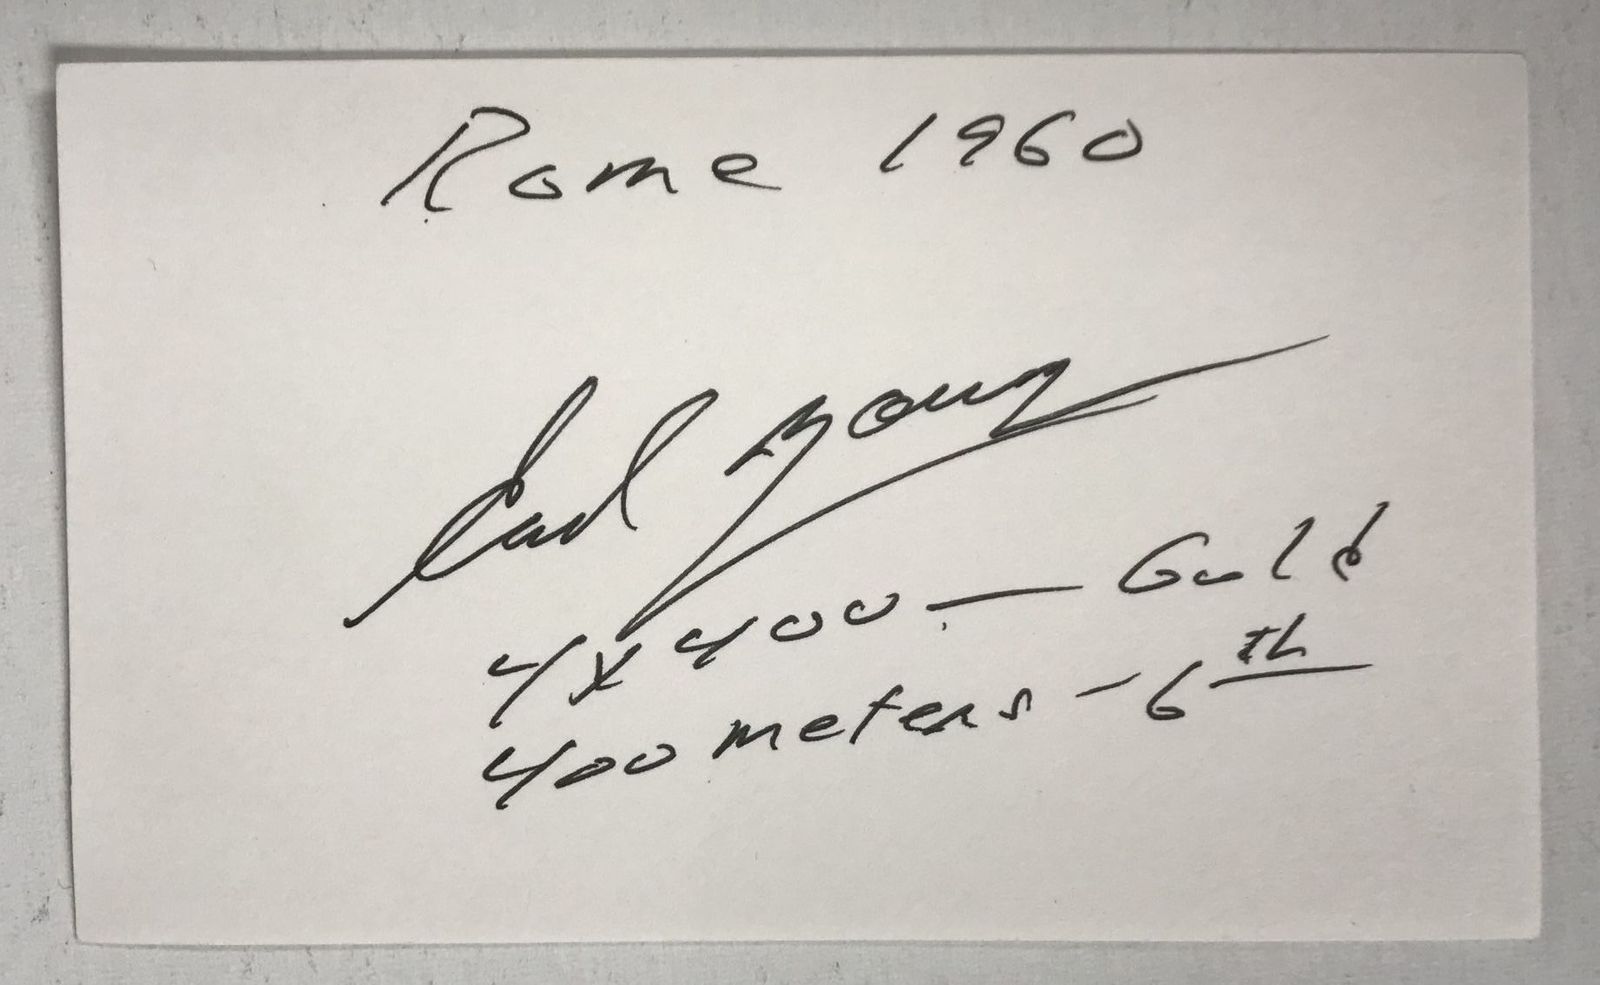 Rome 1960
Earl Young
4x400 — Gold
400 meters - 6th